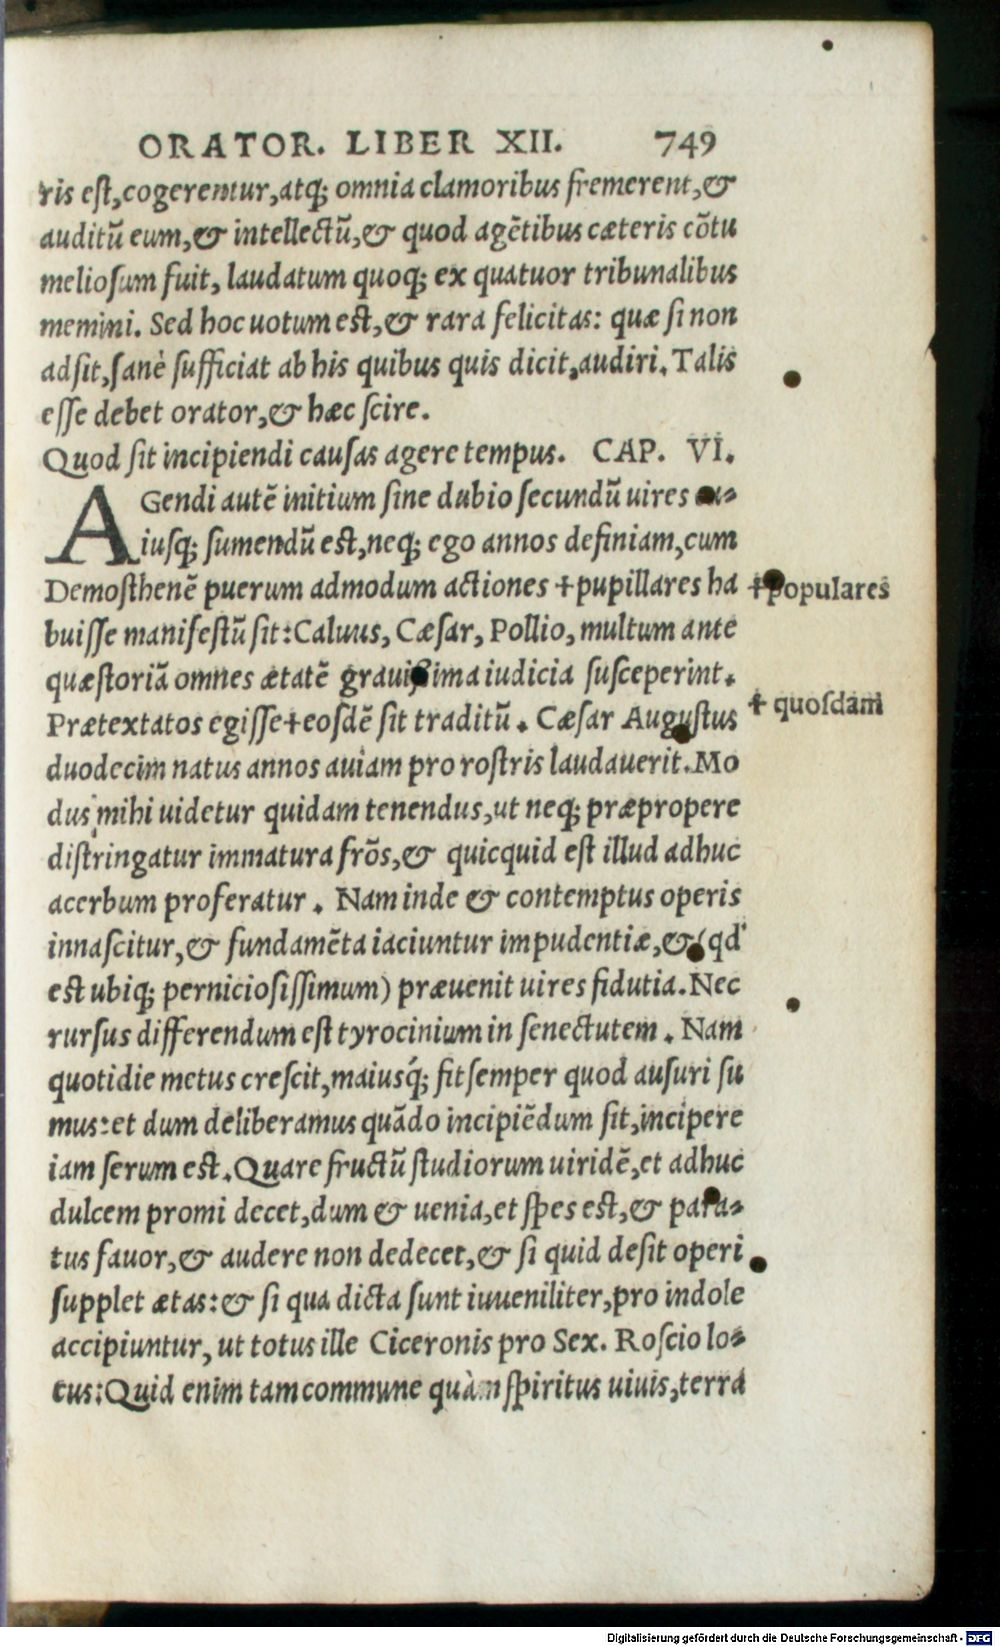 ORATOR. LIBER XII. 749
ris eſt,cogerentur,atq; omnia clamoribus fremerent,&
auditũ eum,& intellectũ,& quod agẽtibus cæteris cõtu
melioſum fuit, laudatum quoq; ex quatuor tribunalibus
memini. Sed hoc uotum eſt,& rara felicitas: quæ ſi non
adſit,ſanè ſufficiat ab his quibus quis dicit,audiri. Talis
eſſe debet orator,& hæc ſcire.
Quod ſit incipiendi cauſas agere tempus. CAP. VI.
AGendi autẽ initium ſine dubio ſecundũ uires
iuſq; ſumendũ eſt,neq; ego annos definiam,cum
Demoſthenẽ puerum admodum actiones +pupillares ha +populares
buiſſe manifeſtũ ſit:Caluus, Cæſar, Pollio, multum ante
quæſtoriã omnes ætatẽ grauiſſima iudicia ſuſceperint.
Prætextatos egiſſe+eoſdẽ ſit traditũ. Cæſar Auguſtus + quoſdam
duodecim natus annos auiam pro roſtris laudauerit.Mo
dus mihi uidetur quidam tenendus,ut neq; præpropere
diſtringatur immatura frõs,& quicquid eſt illud adhuc
acerbum proferatur. Nam inde & contemptus operis
innaſcitur,& fundamẽta iaciuntur impudentiæ,&(qd'
eſt ubiq; pernicioſiſſimum) præuenit uires fidutia.Nec
rurſus differendum eſt tyrocinium in ſenectutem. Nam
quotidie metus creſcit,maiusq́; fit ſemper quod auſuri ſu
mus:et dum deliberamus quãdo incipiẽdum ſit,incipere
iam ſerum eſt.Quare fructũ ſtudiorum uiridẽ,et adhuc
dulcem promi decet,dum & uenia,et ſpes eſt,& para-
tus fauor,& audere non dedecet,& ſi quid deſit operi
ſupplet ætas:& ſi qua dicta ſunt iuueniliter,pro indole
accipiuntur, ut totus ille Ciceronis pro Sex. Roſcio lo-
cus:Quid enim tam commune quàm ſpiritus uiuis,terra
Digitalisierung gefördert durch die Deutsche Forschungsgemeinschaft - DFG